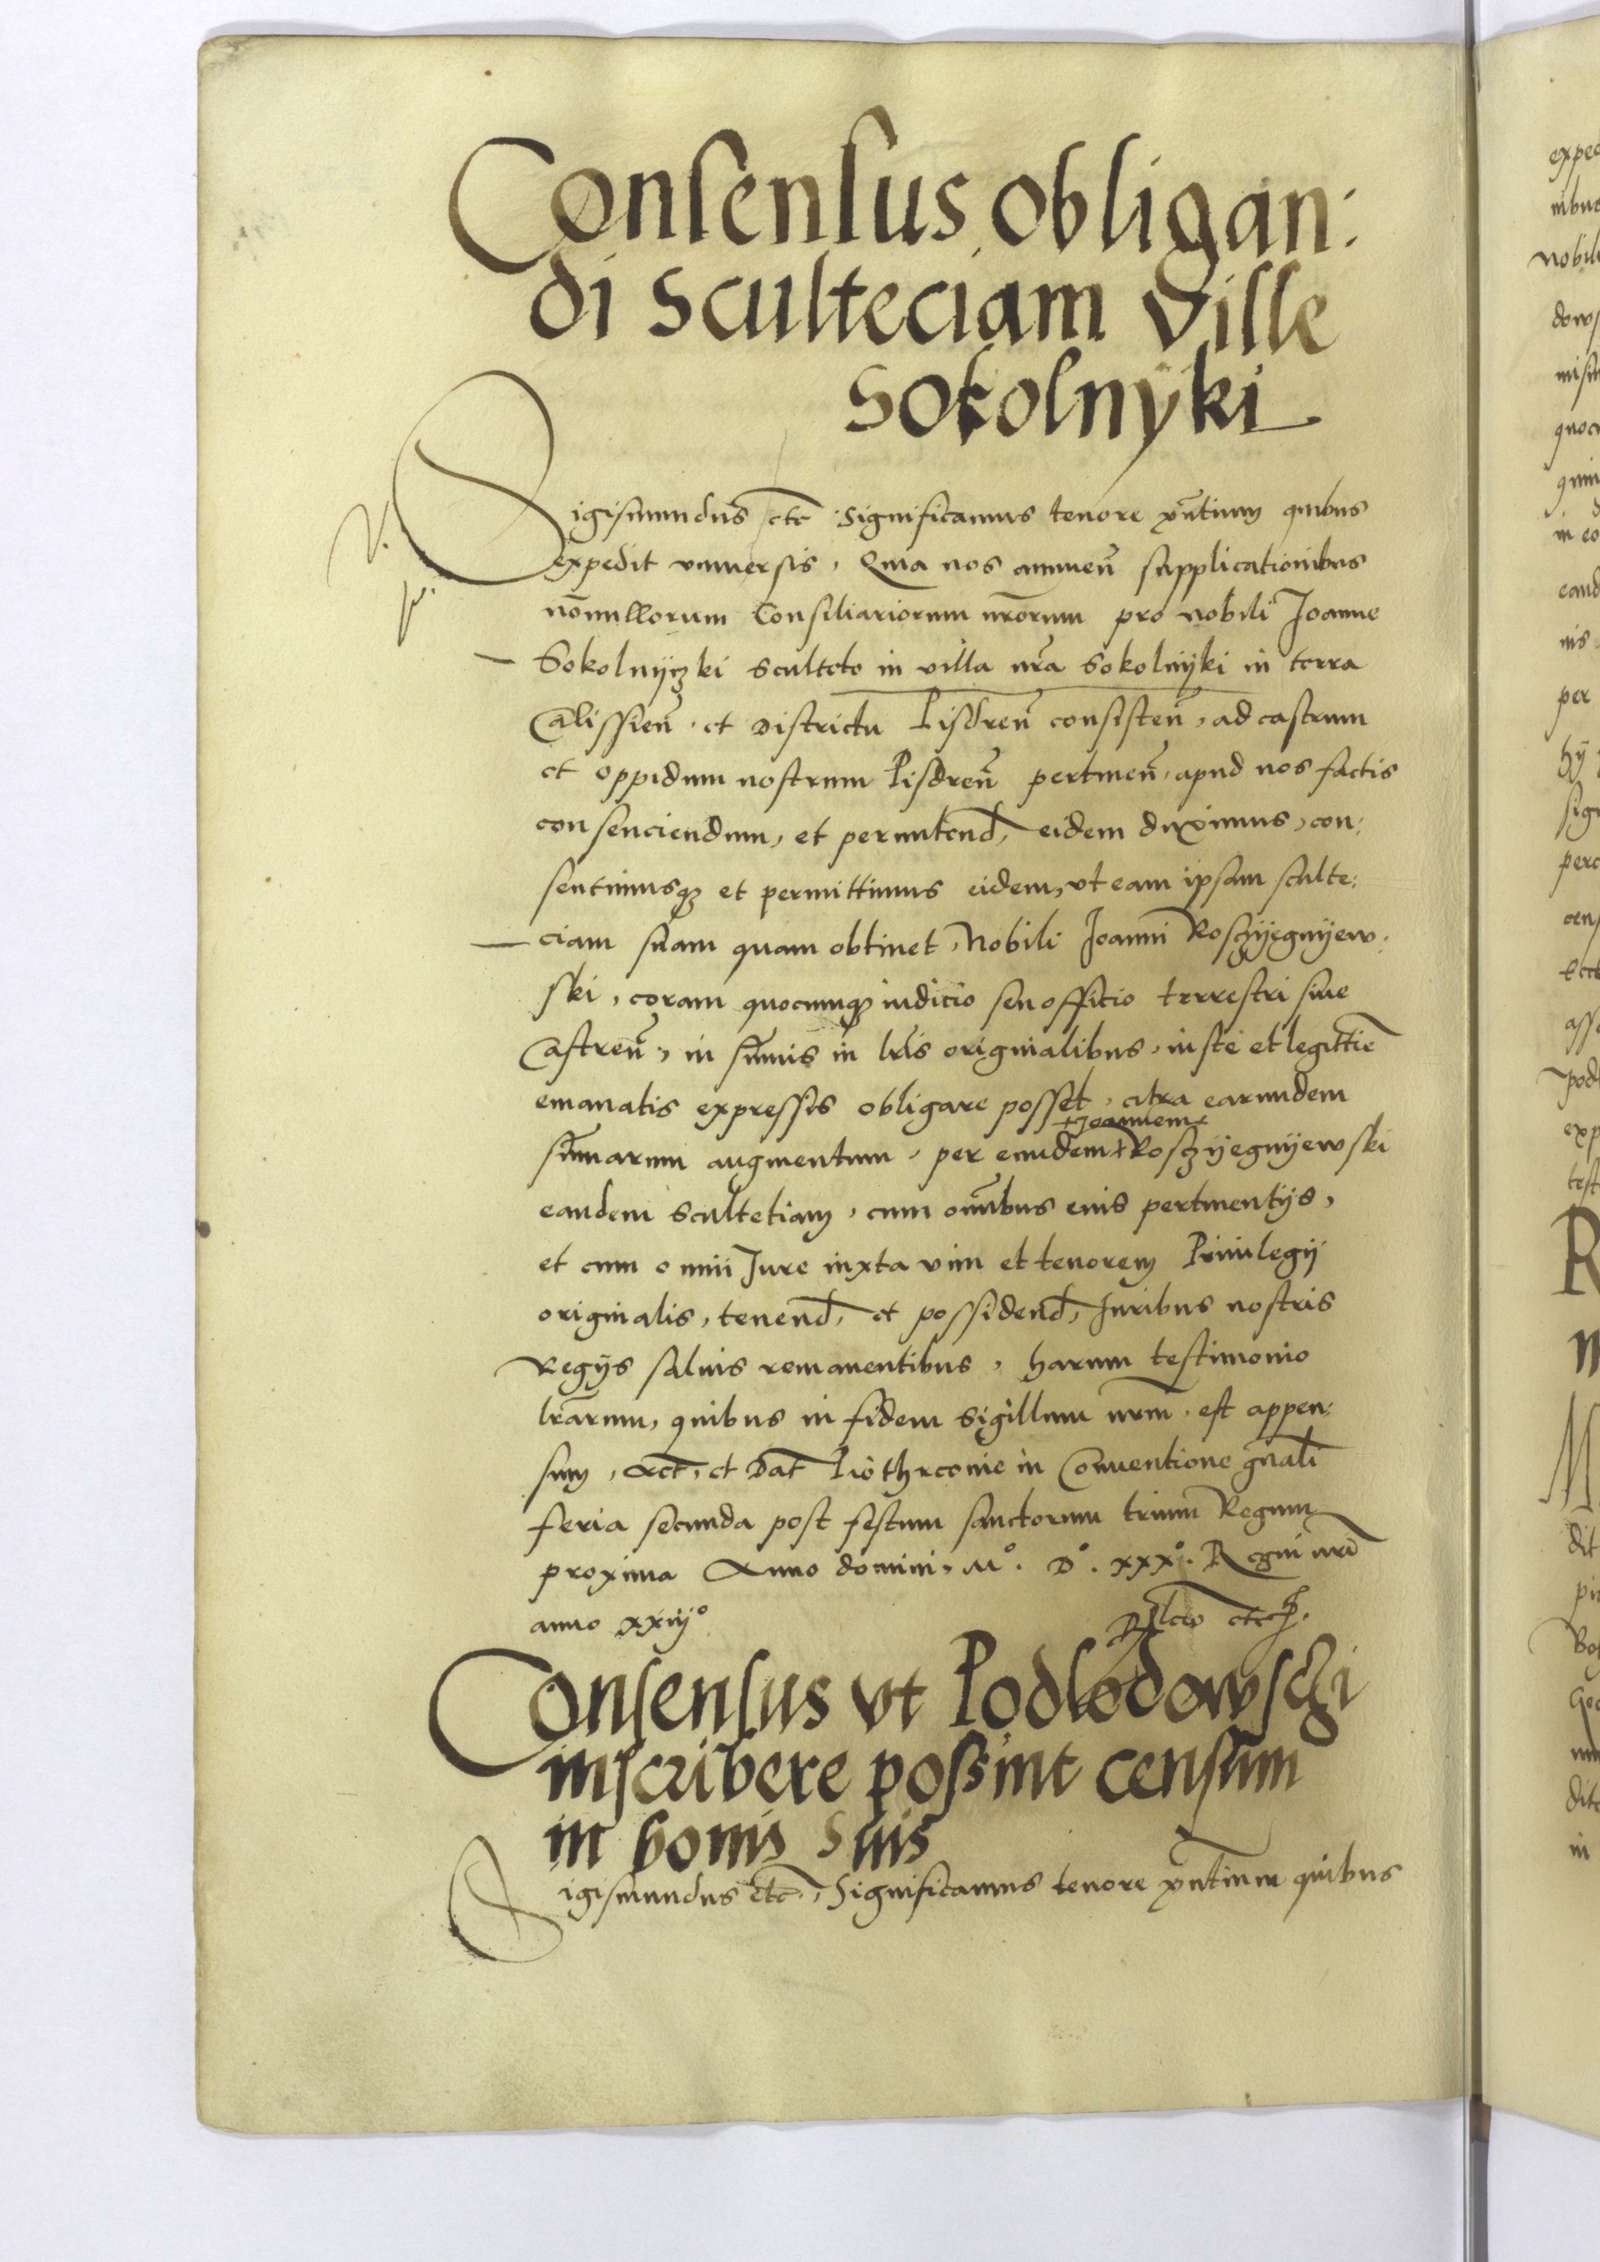 Consensus obligan:
di Sculteciam Ville
Sokolnyki
Sigismundus etc̄ Significamus tenore p̄ntium quibus
expedit vniuersis, Quia nos annuen̄ supplicationibus
nōnullorum Consiliariorum nr̄orum pro nobili Joanne
Sokolnyczki sculteto in villa nr̄a Sokolnyki in terra
Calissien̄, et Districtu Pisdren̄ consisten̄, ad castrum
et oppidum nostrum Pisdren̄ pertinen̄, apud nos factis
consenciendum, et permittend̄, eidem duximus, con:
sentimusq₃ et permittimus eidem, vt eam ipsam sculte:
ciam suam quam obtinet, Nobili Joanni Rosczyegnyew:
ski, coram quocunq₃ iudicio seu officio terrestri siue
Castren̄, in sum̄is in lr̄is originalibus, iuste et legittie̅
emanatis expressis obligare posset, citra earundem
+Joannem+
sum̄arum augmentum, per eundem + Rosczyegnyewski
eandem scultetiam, cum om̄ibus eius pertinentijs,
et cum omni Jure iuxta vim et tenorem Priuilegij
originalis, tenend̄, et possidend̄, Juribus nostris
Regijs saluis remanentibus, harum testimonio
lr̄arum, quibus in fidem sigillum nr̄m est appen:
sum, Act̄, et Dat̄ Piothrconie in Conuentione gn̄ali
feria secunda post festum sanctorum trium Regum
proxima Anno domini, M°. D°. xxx°. Regni nr̄i
anno xxiij°
Rel̄cio etc
Consensus vt Podlodowsczi
inscribere possint censum
in bonis Suis
Sigismundus etc̄, Significamus tenore p̄ntium quibus